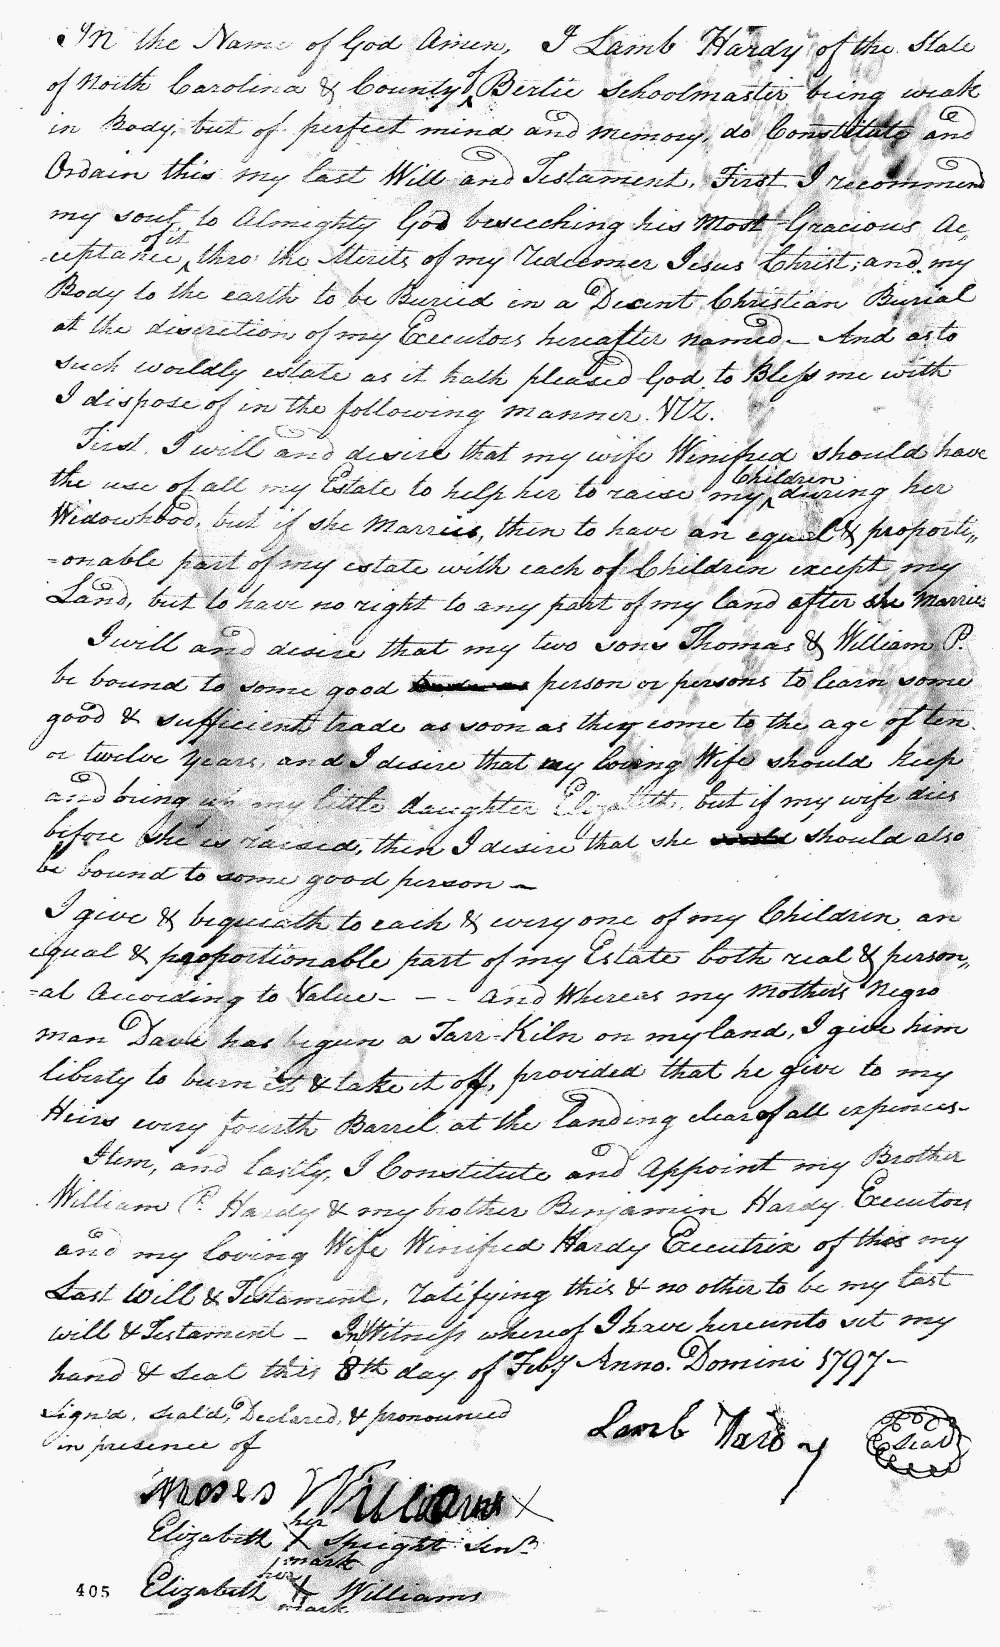 In the Name of God Amen, I Lamb Hardy of the State
of North Carolina & County of Bertie Schoolmaster being weak
in Body, but of perfect mind and memory, do Constitute and
Ordain this my last Will and Testament, First I recommend
my soul, to Almighty God beseeching his Most Gracious Ac„
-ceptance of it thro' the Merits of my Redeemer Jesus Christ; and my
Body to the earth to be Buried in a Decent Christian Burial
at the discretion of my Executors hereafter named - And as to
such worldly estate as it hath pleased God to Bless me with
I dispose of in the following manner. Viz.
First, I will and desire that my wife Winifred should have
the use of all my Estate to help her to raise my Children during her
Widowhood, but if she Marries, then to have an equal & proporti„
=onable part of my estate with each of Children except my
Land, but to have no right to any part of my land after she Marries
I will and desire that my two sons Thomas & William P.
be bound to some good person or persons to learn some
good & sufficient trade as soon as they come to the age of ten
or twelve Years, and I desire that my loving Wife should keep
and bring up my little daughter Elizabeth, but if my wife dies
before she is raised, then I desire that she should also
be bound to some good person -
I give & bequeath to each & every one of my Children an
equal & proportionable part of my Estate both real & person„
=al According to Value - - - And Whereas my Mothers Negro
man Dave has begun a Tarr-Kiln on my land, I give him
liberty to burn it & take it off, provided that he give to my
Heirs every fourth Barrel at the landing clear of all expences-
Item, and lastly, I Constitute and Appoint my Brother
William P. Hardy & my brother Benjamin Hardy Executors
and my loving Wife Winifred Hardy Executrix of this my
Last Will & Testament, Ratifying this & no other to be my last
will & Testament - In Witness whereof I have hereunto set my
hand & seal this 8th day of Feby Anno. Domini 1797-
Sign'd, seal'd, Declared, & pronounced
in presence of
Lamb Hardy
Seal
Moses Williams
Elizabeth her X mark Speight Senr
Elizabeth her X mark Williams
405